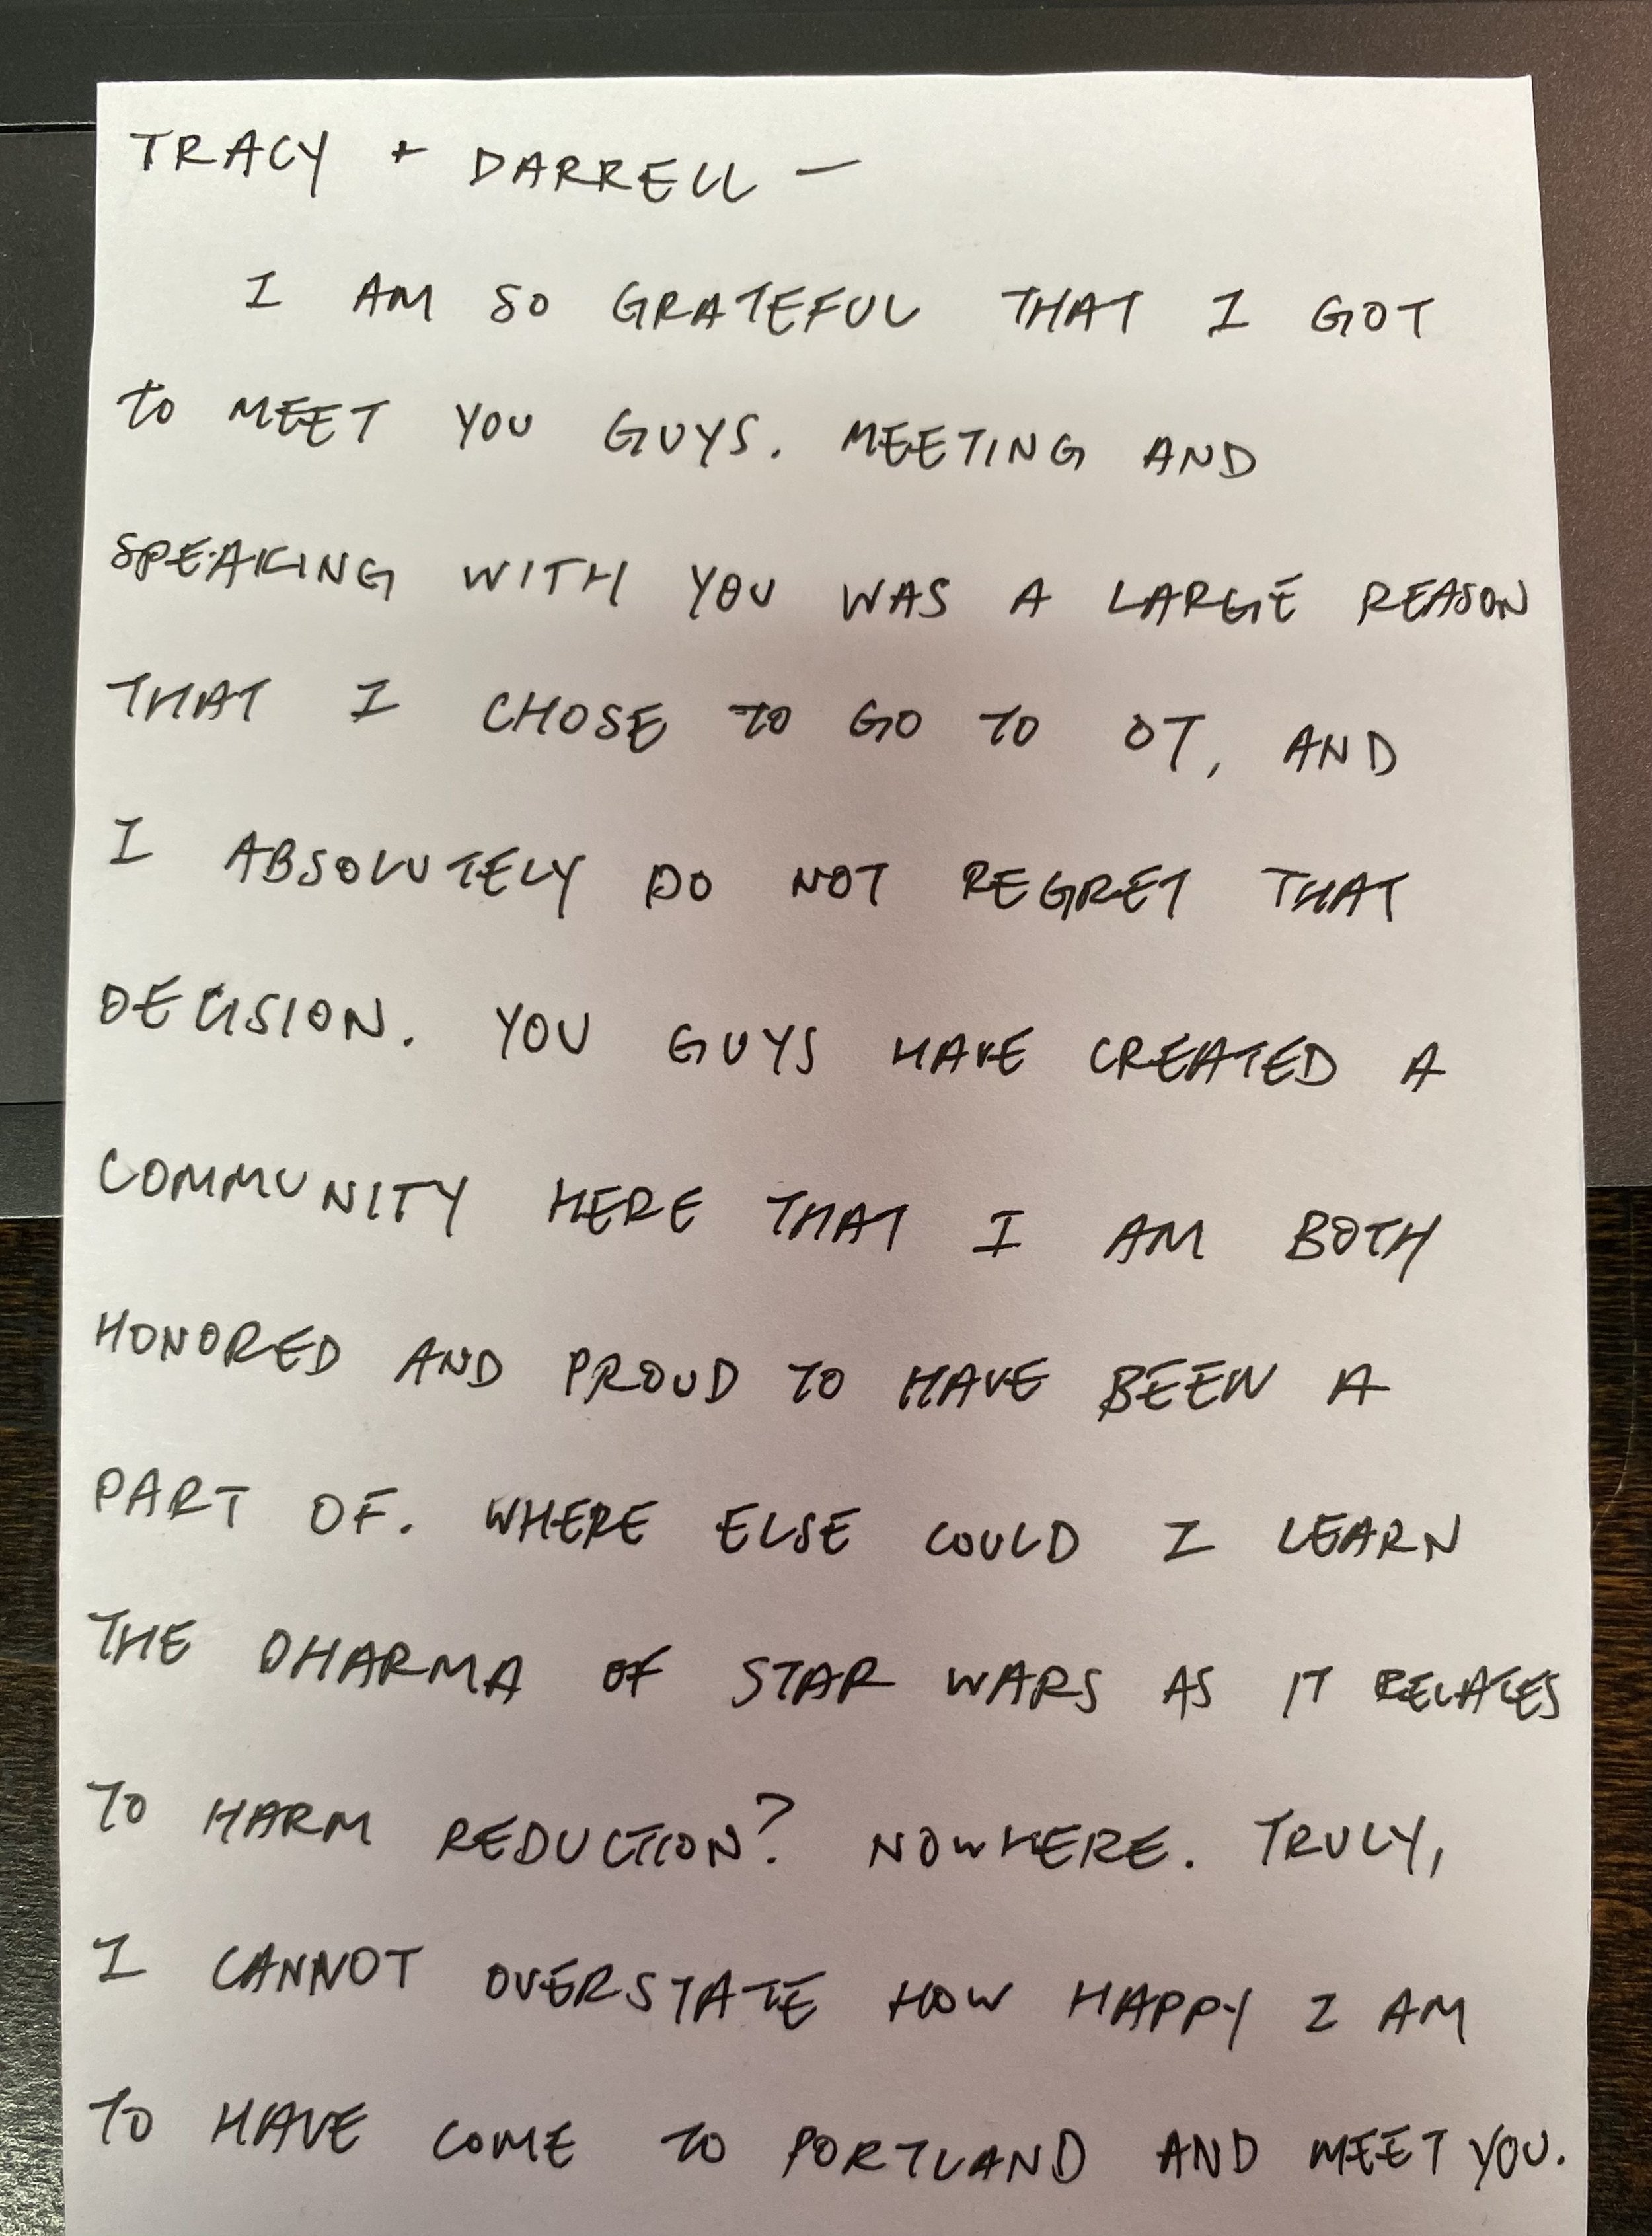 TRACY + DARRELL —
I AM SO GRATEFUL THAT I GOT
TO MEET YOU GUYS. MEETING AND
SPEAKING WITH YOU WAS A LARGE REASON
THAT I CHOSE TO GO TO OT, AND
I ABSOLUTELY DO NOT REGRET THAT
DECISION. YOU GUYS HAVE CREATED A
COMMUNITY HERE THAT I AM BOTH
HONORED AND PROUD TO HAVE BEEN A
PART OF. WHERE ELSE COULD I LEARN
THE DHARMA OF STAR WARS AS IT RELATES
TO HARM REDUCTION? NOWHERE. TRULY,
I CANNOT OVERSTATE HOW HAPPY I AM
TO HAVE COME TO PORTLAND AND MEET YOU.